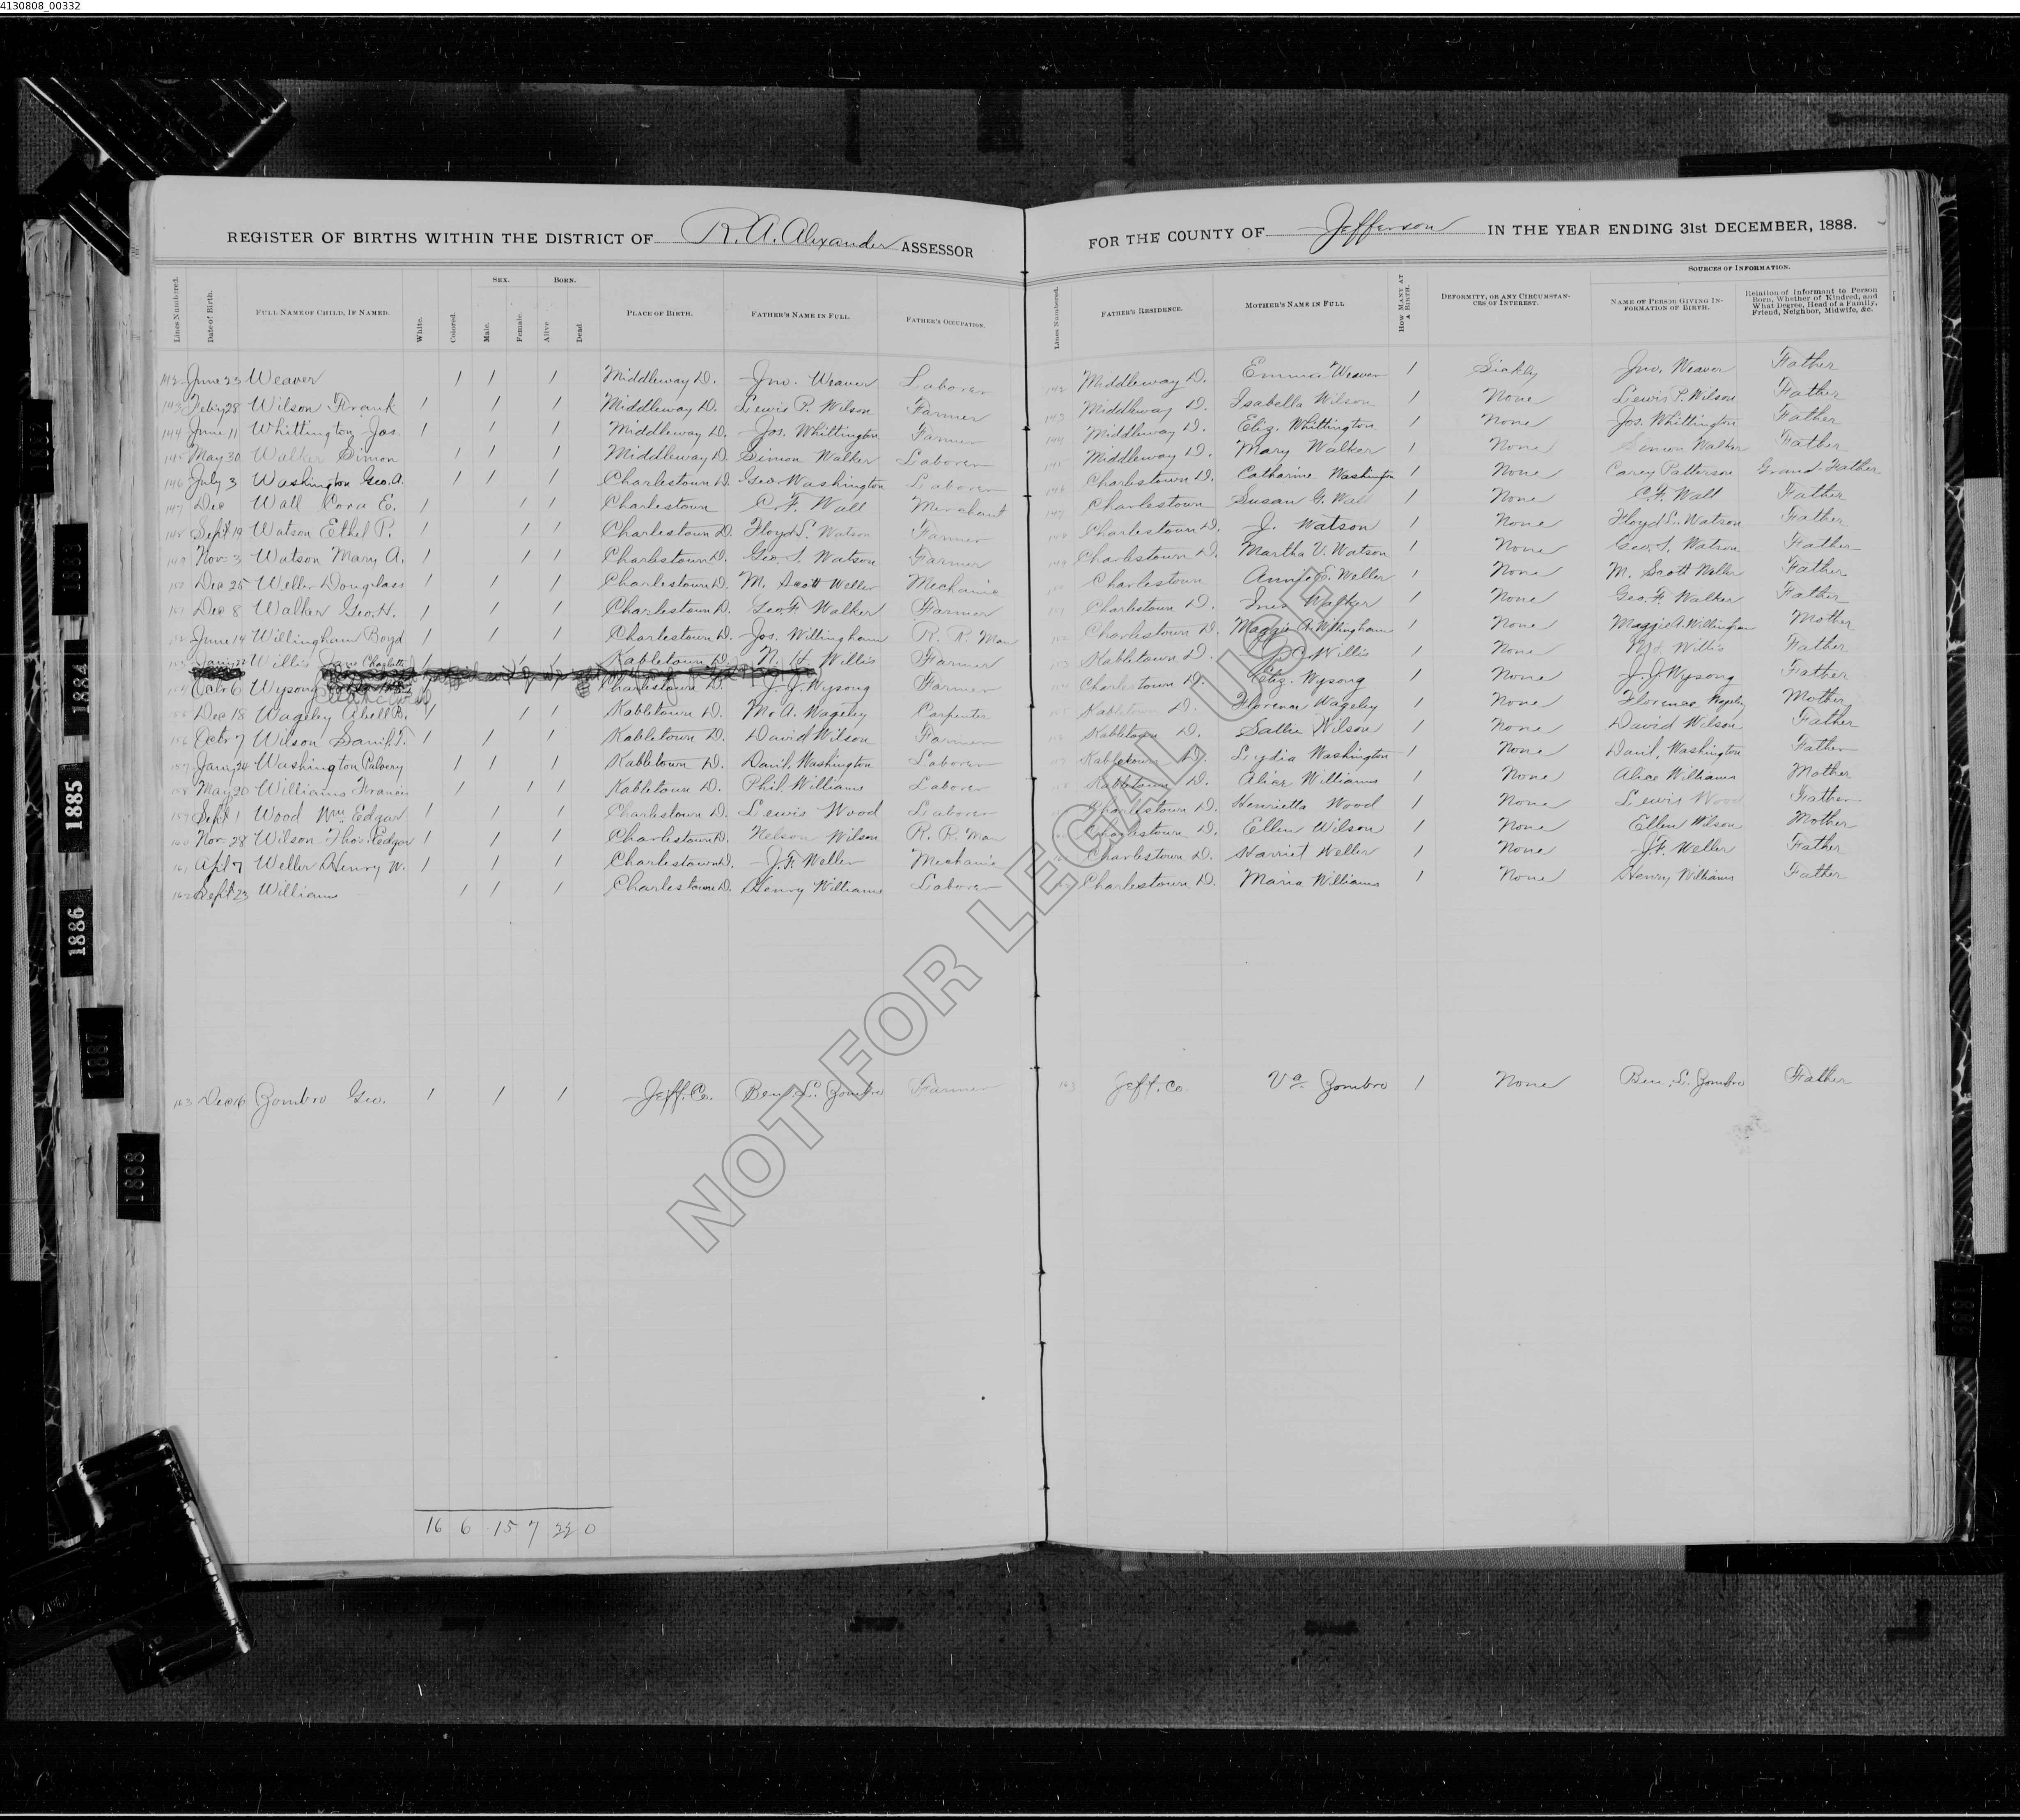 4130808_00332
REGISTER OF BIRTHS WITHIN THE DISTRICT OF R. A. Alexander ASSESSOR FOR THE COUNTY OF Jefferson IN THE YEAR ENDING 31st DECEMBER, 1888.
Lines Numbered. Date of Birth. FULL NAME OF CHILD, IF NAMED. White. Colored. SEX. Male. Female. BORN. Alive. Dead. PLACE OF BIRTH. FATHER'S NAME IN FULL. FATHER'S OCCUPATION. Lines Numbered. FATHER'S RESIDENCE. MOTHER'S NAME IN FULL HOW MANY AT A BIRTH. DEFORMITY, OR ANY CIRCUMSTANCES OF INTEREST. SOURCES OF INFORMATION. NAME OF PERSON GIVING INFORMATION OF BIRTH. Relation of Informant to Person Born, Whether of Kindred, and What Degree, Head of a Family, Friend, Neighbor, Midwife, &c.
142 June 23 Weaver 1 1 1 Middleway D. Jno. Weaver Laborer 142 Middleway D. Emma Weaver 1 Sickly Jno. Weaver Father
143 Feby 28 Wilson Frank 1 1 1 Middleway D. Lewis P. Wilson Farmer 143 Middleway D. Isabella Wilson 1 None Lewis P. Wilson Father
144 June 11 Whittington Jos. 1 1 1 Middleway D. Jos. Whittington Farmer 144 Middleway D. Eliz. Whittington 1 None Jos. Whittington Father
145 May 30 Walker Simon 1 1 1 Middleway D. Simon Walker Laborer 145 Middleway D. Mary Walker 1 None Simon Walker Father
146 July 3 Washington Geo. A. 1 1 1 Charlestown D. Geo. Washington Laborer 146 Charlestown D. Catharine Washington 1 None Carey Patterson Grand-Father
147 Dec Wall Cora E. 1 1 1 Charlestown C. F. Wall Merchant 147 Charlestown Susan G. Wall 1 None C. F. Wall Father
148 Sept 19 Watson Ethel P. 1 1 1 Charlestown D. Floyd L. Watson Farmer 148 Charlestown D. J. Watson 1 None Floyd L. Watson Father
149 Nov 3 Watson Mary A. 1 1 1 Charlestown D. Geo. S. Watson Farmer 149 Charlestown D. Martha V. Watson 1 None Geo. S. Watson Father
150 Dec 25 Weller Douglass 1 1 1 Charlestown D. M. Scott Weller Mechanic 150 Charlestown Annie E. Weller 1 None M. Scott Weller Father
151 Dec 8 Walker Geo. H. 1 1 1 Charlestown D. Geo. F. Walker Farmer 151 Charlestown D. Walker 1 None Geo. F. Walker Father
152 June 14 Willingham Boyd 1 1 1 Charlestown D. Jos. Willingham R. R. Man 152 Charlestown D. Maggie A. Willingham 1 None Maggie A. Willingham Mother
153 Willis Jane Charlotte 1 1 1 Kabletown D. N. H. Willis Farmer 153 Kabletown D. Willis 1 None N. H. Willis Father
154 Octr 6 Wysong 1 1 1 Charlestown D. J. J. Wysong Farmer 154 Charlestown D. Eliz. Wysong 1 None J. J. Wysong Father
155 Dec 18 Wageley Abell B. 1 1 1 Kabletown D. M. A. Wageley Carpenter 155 Kabletown D. Florence Wageley 1 None Florence Wageley Mother
156 Octr 7 Wilson Danil. T. 1 1 1 Kabletown D. David Wilson Farmer 156 Kabletown D. Sallie Wilson 1 None David Wilson Father
157 Jany 24 Washington 1 1 1 Kabletown D. Danil. Washington Laborer 157 Kabletown D. Lydia Washington 1 None Danil. Washington Father
158 May 20 Williams Francis 1 1 1 Kabletown D. Phil. Williams Laborer 158 Kabletown D. Alice Williams 1 None Alice Williams Mother
159 Sept 1 Wood Wm. Edgar 1 1 1 Charlestown D. Lewis Wood Laborer Charlestown D. Henrietta Wood 1 None Lewis Wood Father
160 Nov 28 Wilson Thos. Edgar 1 1 1 Charlestown D. Nelson Wilson R. R. Man Charlestown D. Ellen Wilson 1 None Ellen Wilson Mother
161 Apl 7 Weller Henry W. 1 1 1 Charlestown D. J. F. Weller Mechanic Charlestown D. Harriet Weller 1 None J. F. Weller Father
162 Sept 23 Williams 1 1 1 Charlestown D. Henry Williams Laborer Charlestown D. Maria Williams 1 None Henry Williams Father
163 Dec 16 Zombro Geo. 1 1 1 Jeff. Co. Benj. L. Zombro Farmer 163 Jeff. Co. Va. Zombro 1 None Ben. L. Zombro Father
16 6 15 7 22 0
NOT FOR LEGAL USE
1882
1883
1884
1885
1886
1887
1888
1889